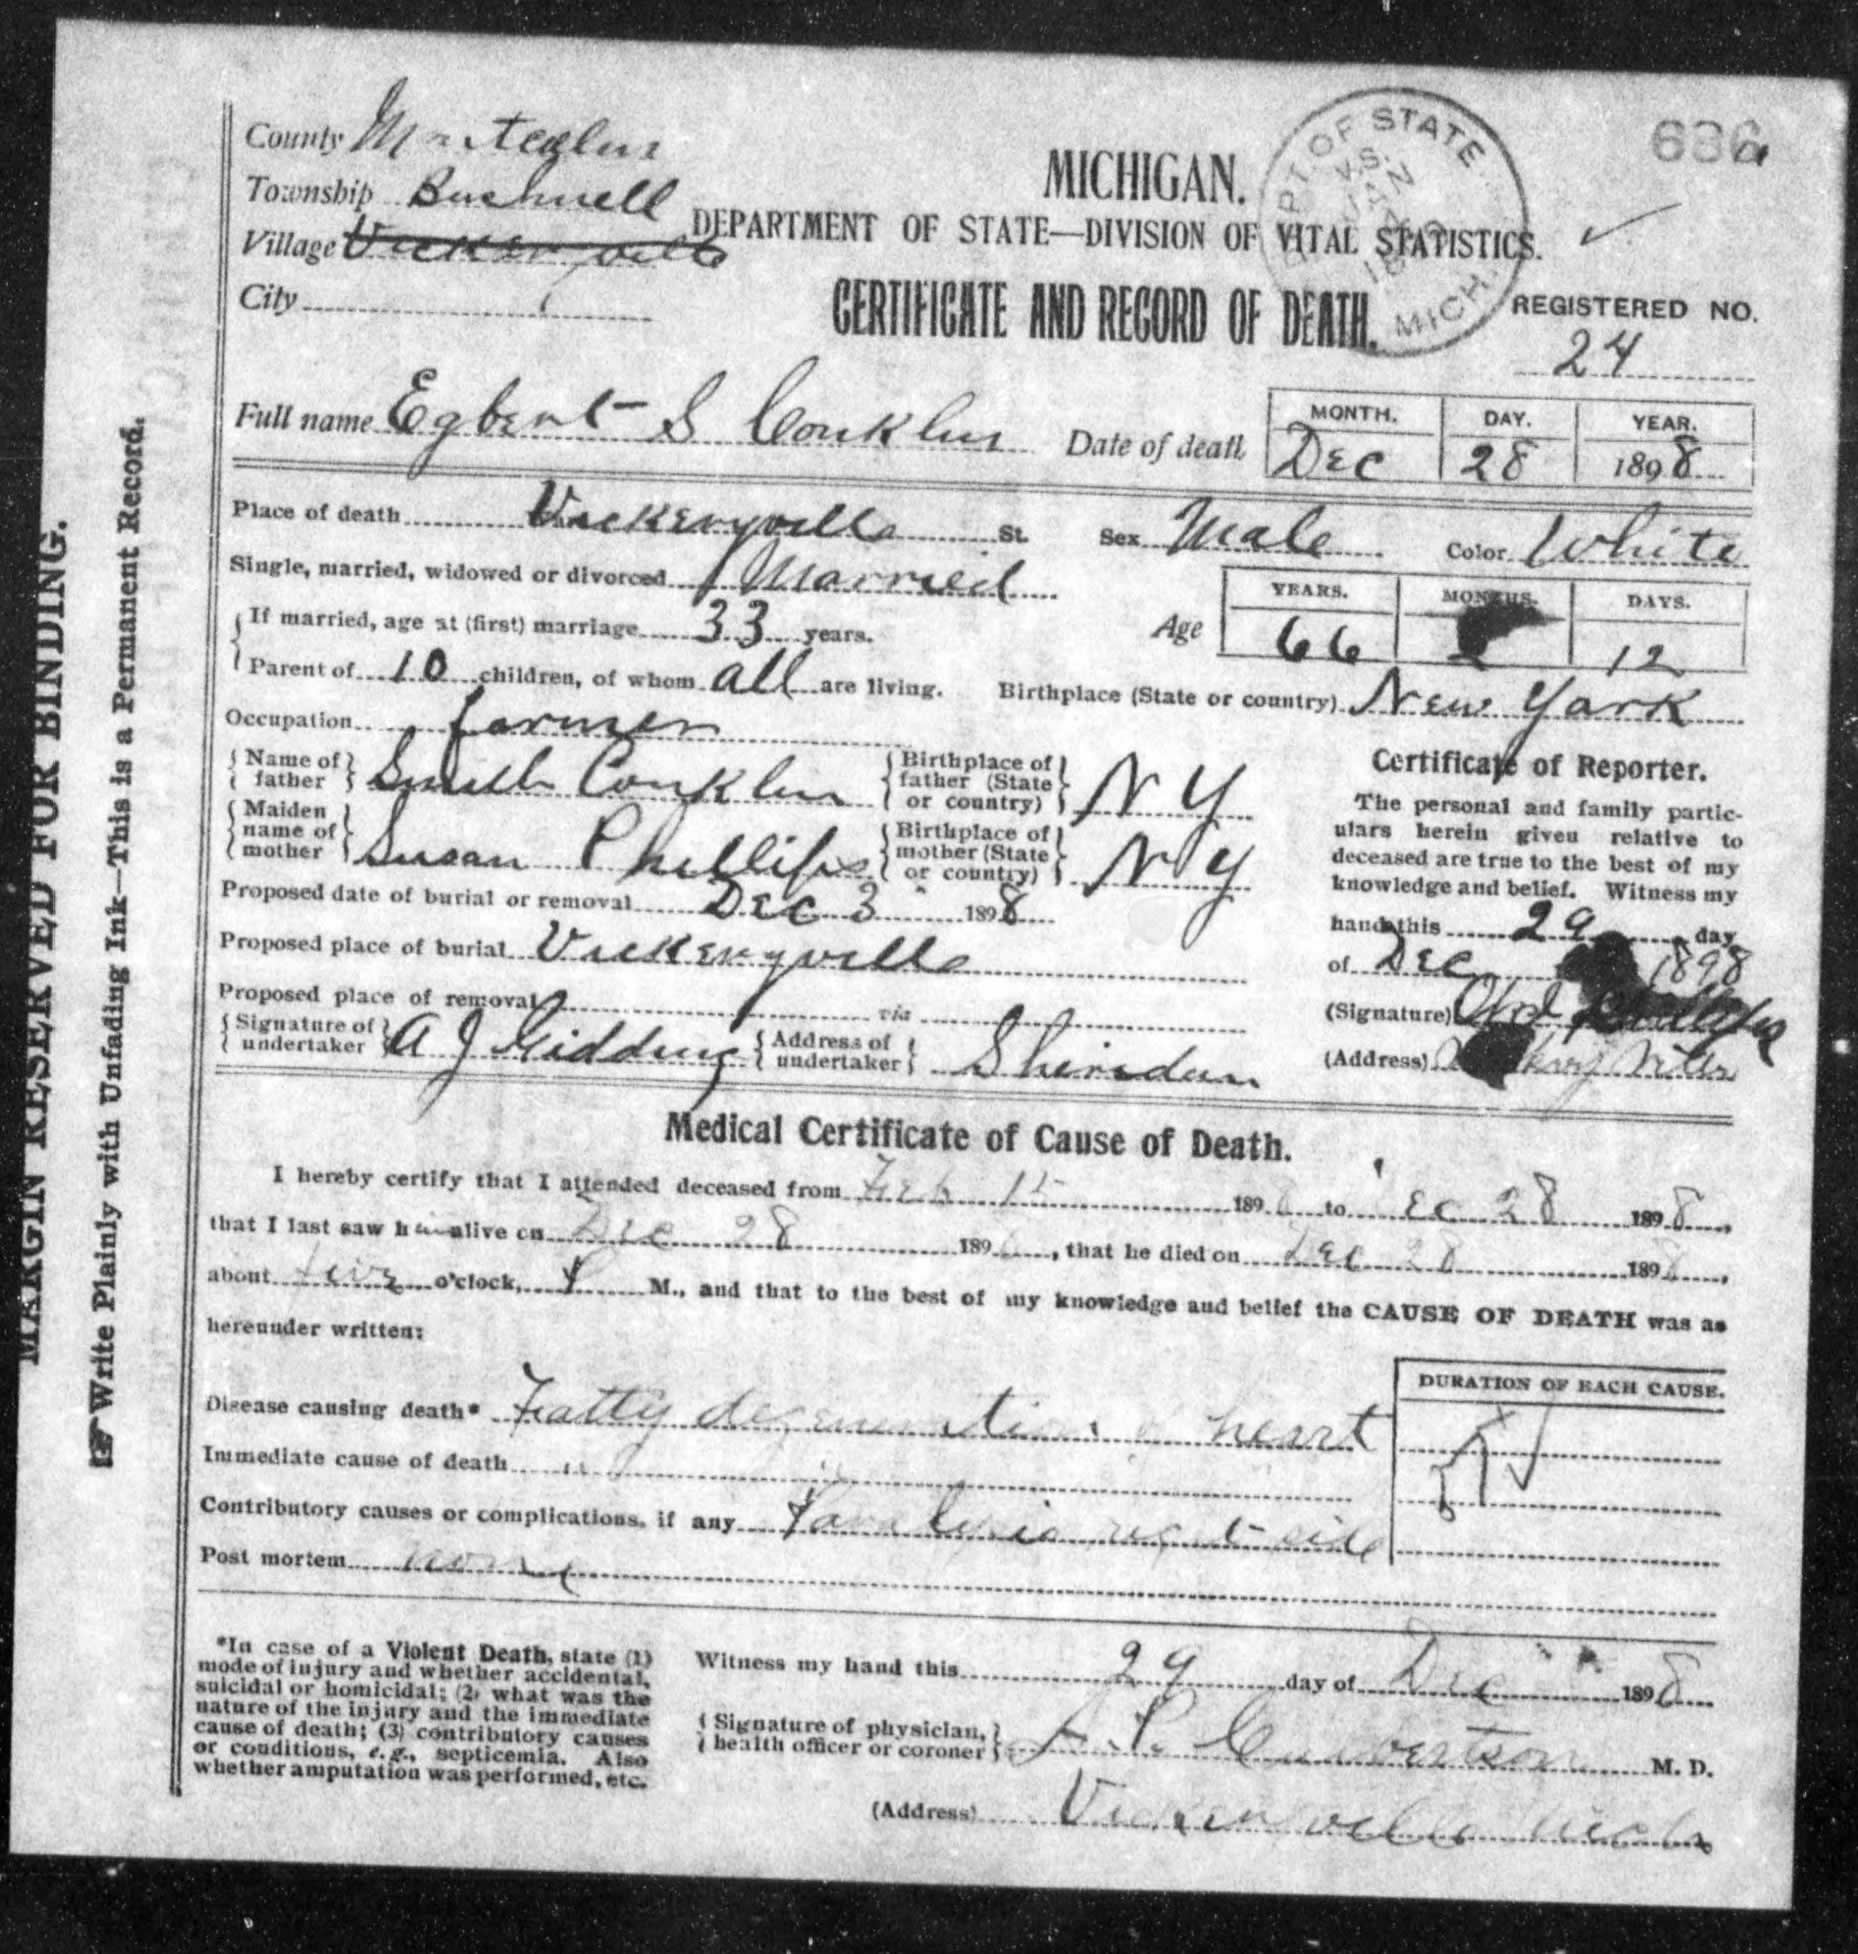 County Montcalm
Township Bushnell
Village Vickeryville
City
MICHIGAN.
DEPARTMENT OF STATE—DIVISION OF VITAL STATISTICS.
CERTIFICATE AND RECORD OF DEATH.
DEPT. OF STATE
V.S.
JAN
MICH.
636a
REGISTERED NO.
24
Full name Egbert S Conklin Date of death
MONTH. DAY. YEAR.
Dec 28 1898
Place of death Vickeryville St. Sex Male Color White
Single, married, widowed or divorced Married
If married, age at (first) marriage 33 years.
Age YEARS. MONTHS. DAYS.
66 12
Parent of 10 children, of whom all are living. Birthplace (State or country) New York
Occupation farmer
Name of father Smith Conklin Birthplace of father (State or country) N Y
Maiden name of mother Susan Phillips Birthplace of mother (State or country) N Y
Proposed date of burial or removal Dec 3 1898
Proposed place of burial Vickeryville
Proposed place of removal via
Signature of undertaker A J Giddings Address of undertaker Sheridan
Certificate of Reporter.
The personal and family partic-
ulars herein given relative to
deceased are true to the best of my
knowledge and belief. Witness my
hand this 29 day
of Dec 1898
(Signature)
(Address)
Medical Certificate of Cause of Death.
I hereby certify that I attended deceased from Feb 15 1898 to Dec 28 1898,
that I last saw him alive on Dec 28 1898, that he died on Dec 28 1898,
about five o'clock, P M., and that to the best of my knowledge and belief the CAUSE OF DEATH was as
hereunder written:
DURATION OF EACH CAUSE.
Disease causing death* Fatty degeneration of heart
Immediate cause of death " " "
Contributory causes or complications, if any Paralysis right side
Post mortem none
*In case of a Violent Death, state (1)
mode of injury and whether accidental,
suicidal or homicidal; (2) what was the
nature of the injury and the immediate
cause of death; (3) contributory causes
or conditions, e.g., septicemia. Also
whether amputation was performed, etc.
Witness my hand this 29 day of Dec 1898
Signature of physician, health officer or coroner M. D.
(Address) Vickeryville Mich
MARGIN RESERVED FOR BINDING.
Write Plainly with Unfading Ink—This is a Permanent Record.